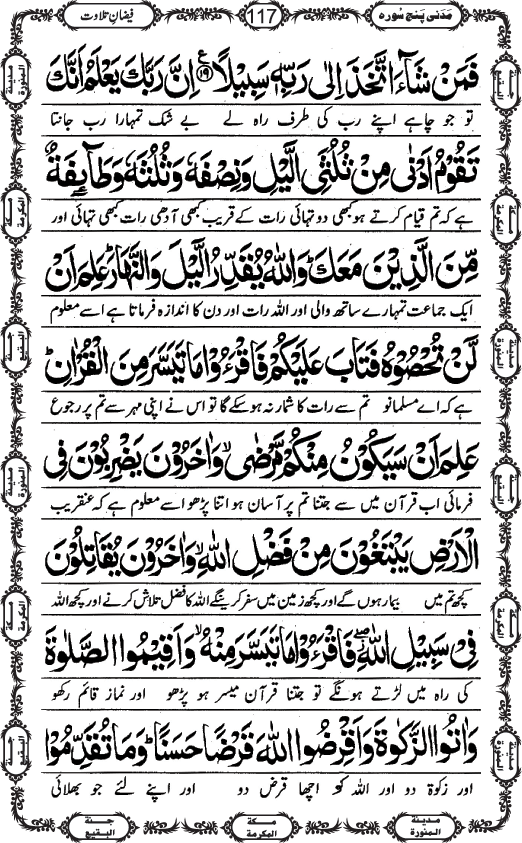 مَدَنی پَنج سُورہ
117
فیضانِ تلاوت
فَمَنْ شَآءَ اتَّخَذَ اِلٰى رَبِّهٖ سَبِیْلًا ﴿۱۹﴾ ع اِنَّ رَبَّكَ یَعْلَمُ اَنَّكَ
تو جو چاہے اپنے رب کی طرف راہ لے بے شک تمہارا رب جانتا
تَقُوْمُ اَدْنٰى مِنْ ثُلُثَیِ الَّیْلِ وَ نِصْفَهٗ وَ ثُلُثَهٗ وَ طَآىٕفَةٌ
ہے کہ تم قیام کرتے ہو کبھی دو تہائی رات کے قریب کبھی آدھی رات کبھی تہائی اور
مِّنَ الَّذِیْنَ مَعَكَ ؕ وَ اللّٰهُ یُقَدِّرُ الَّیْلَ وَ النَّهَارَ ؕ عَلِمَ اَنْ
ایک جماعت تمہارے ساتھ والی اور اللہ رات اور دن کا اندازہ فرماتا ہے اسے معلوم
لَّنْ تُحْصُوْهُ فَتَابَ عَلَیْكُمْ فَاقْرَءُوْا مَا تَیَسَّرَ مِنَ الْقُرْاٰنِ ؕ
ہے کہ اے مسلمانو تم سے رات کا شمار نہ ہوسکے گا تو اس نے اپنی مہر سے تم پر رجوع
عَلِمَ اَنْ سَیَكُوْنُ مِنْكُمْ مَّرْضٰى ۙ وَ اٰخَرُوْنَ یَضْرِبُوْنَ فِی
فرمائی اب قرآن میں سے جتنا تم پر آسان ہو اتنا پڑھو اسے معلوم ہے کہ عنقریب
الْاَرْضِ یَبْتَغُوْنَ مِنْ فَضْلِ اللّٰهِ ۙ وَ اٰخَرُوْنَ یُقَاتِلُوْنَ
کچھ تم میں بیمار ہوں گے اور کچھ زمین میں سفر کرینگے اللہ کا فضل تلاش کرنے اور کچھ اللہ
فِیْ سَبِیْلِ اللّٰهِ ۖ فَاقْرَءُوْا مَا تَیَسَّرَ مِنْهُ ۙ وَ اَقِیْمُوا الصَّلٰوةَ
کی راہ میں لڑتے ہونگے تو جتنا قرآن میسر ہو پڑھو اور نماز قائم رکھو
وَ اٰتُوا الزَّكٰوةَ وَ اَقْرِضُوا اللّٰهَ قَرْضًا حَسَنًا ؕ وَ مَا تُقَدِّمُوْا
اور زکوٰۃ دو اور اللہ کو اچھا قرض دو اور اپنے لئے جو بھلائی
جنۃ البقیع
مکۃ المکرمۃ
مدینۃ المنورۃ